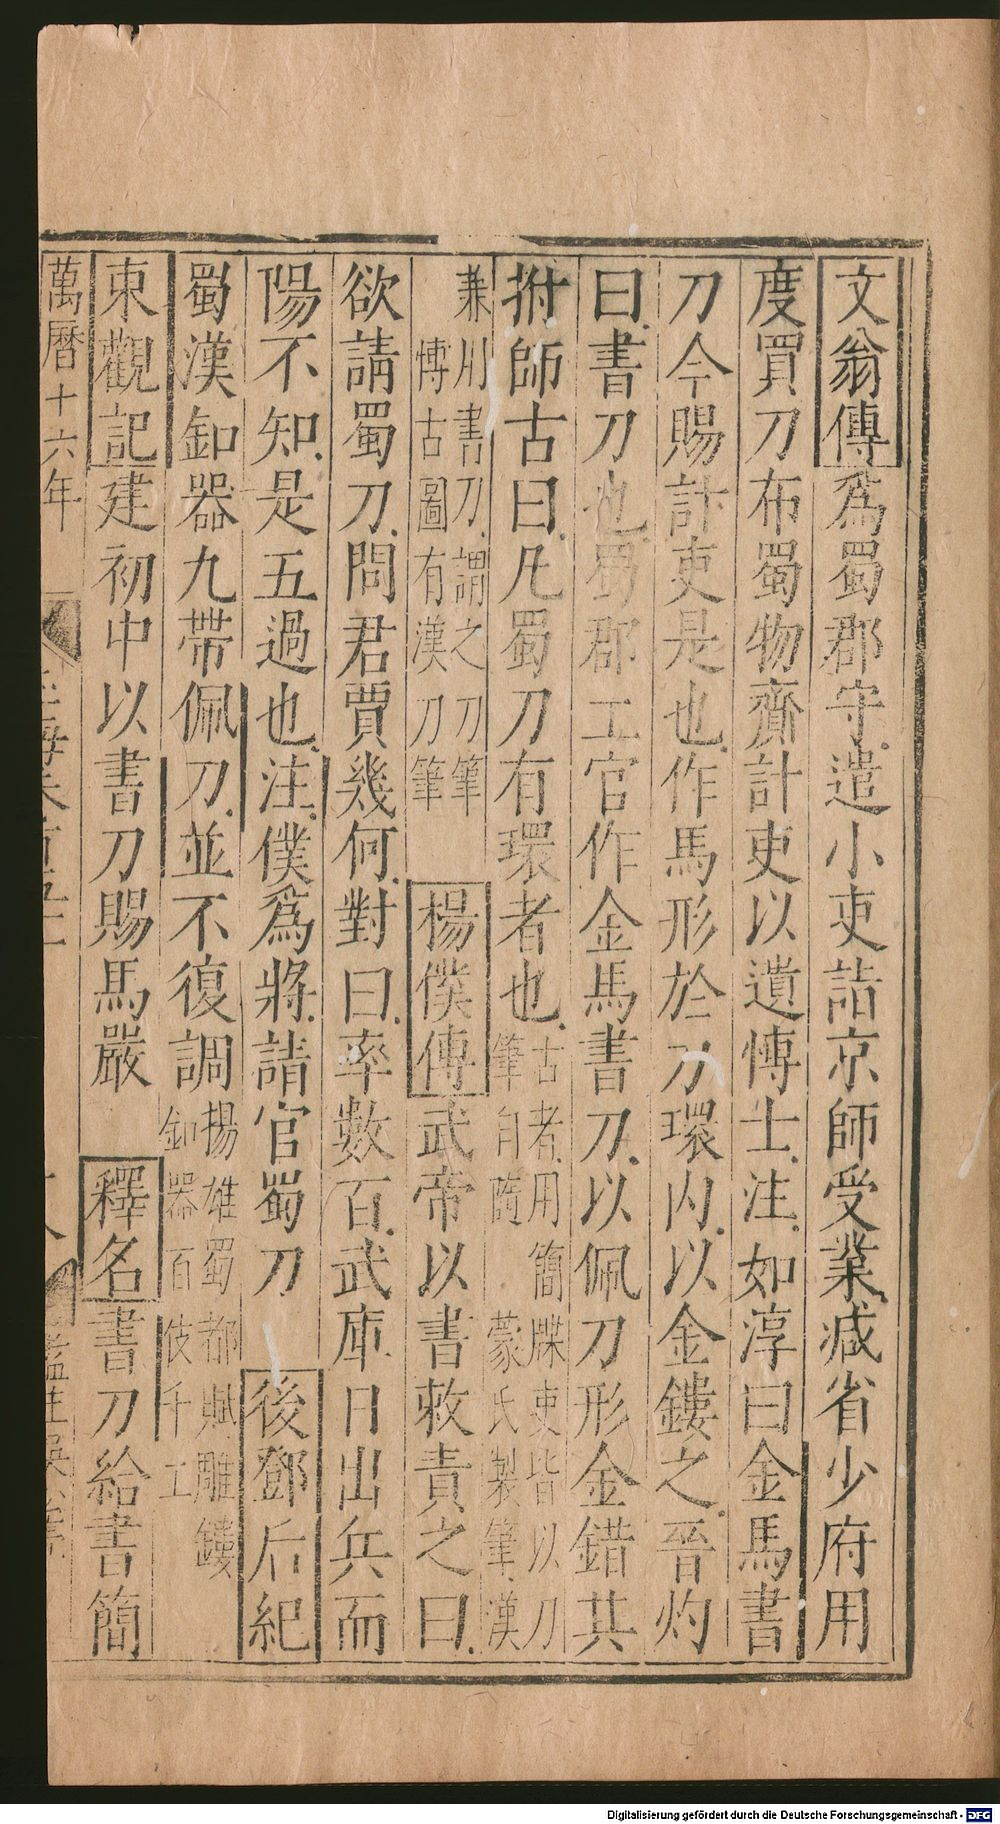 文翁傳爲蜀郡守遣小吏詣京師受業減省少府用
度買刀布蜀物齎計吏以遺愽士注如淳曰金馬書
刀今賜計吏是也作馬形於刀環内以金鏤之晉灼
曰書刀也蜀郡工官作金馬書刀以佩刀形金錯其
拊師古曰凡蜀刀有環者也古者用簡牒吏皆以刀
筆自隨蒙氏製筆漢
兼用書刀謂之刀筆
愽古圖有漢刀筆
楊僕傳武帝以書敕責之曰
欲請蜀刀問君賈幾何對曰率數百武庫日出兵而
陽不知是五過也注僕爲將請官蜀刀 後鄧后紀
蜀漢釦器九帶佩刀並不復調揚雄蜀都賦雕鏤
釦器百伎千工
東觀記建初中以書刀賜馬嚴 釋名書刀給書簡
萬曆十六年
監生吳
Digitalisierung gefördert durch die Deutsche Forschungsgemeinschaft - DFG